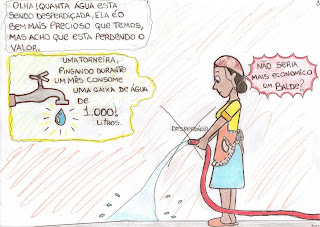 OLHA! QUANTA ÁGUA ESTA
SENDO DESPERDIÇADA, ELA É O
BEM MAIS PRECIOSO QUE TEMOS,
MAS ACHO QUE ESTA PERDENDO O
VALOR.
UMA TORNEIRA,
PINGANDO DURANTE
UM MÊS CONSOME
UMA CAIXA DE ÁGUA
DE
1.000!
LITROS.
DESPERDÍCIO
NÃO SERIA
MAIS ECONOMICO
UM BALDE?
3